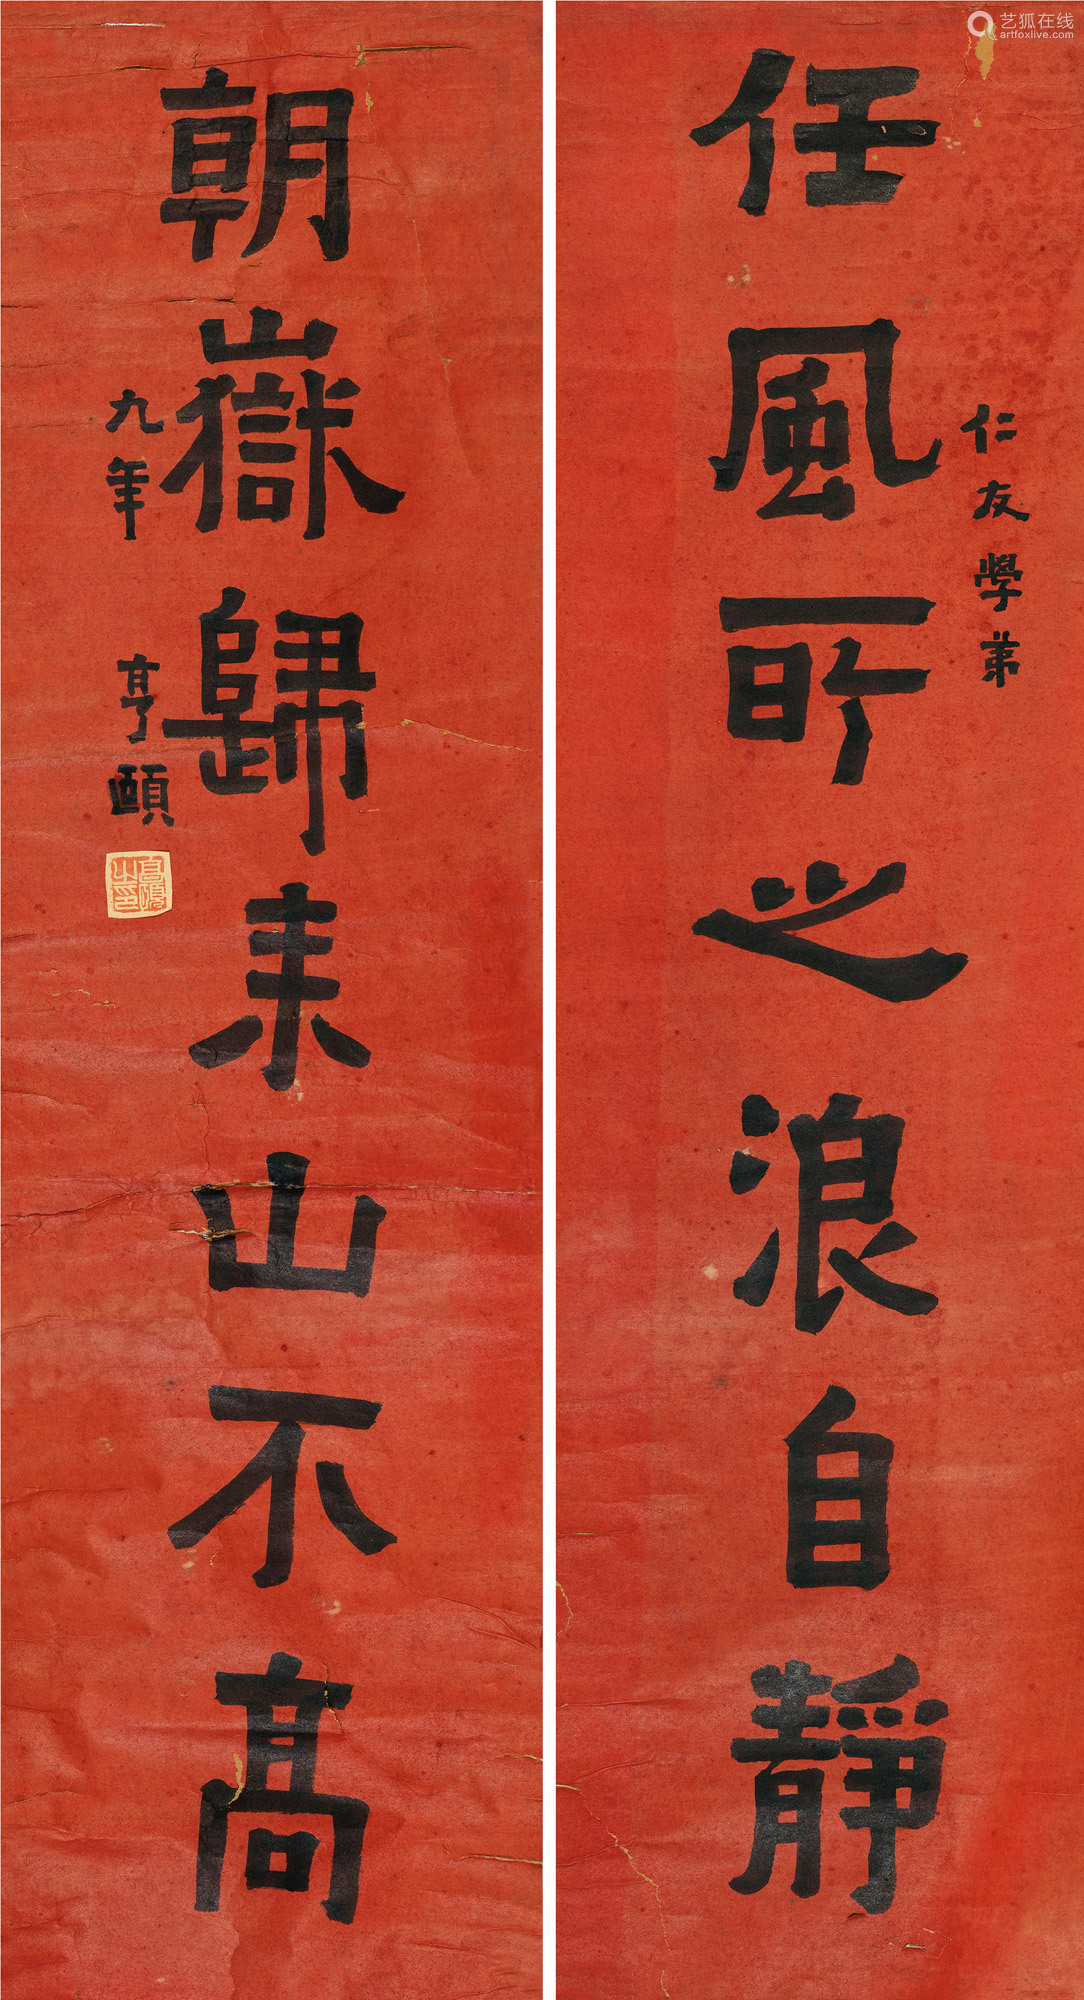 艺狐在线
artfoxlive.com
仁友學弟
任風所之浪自静
朝嶽歸来山不高
九年
亨頤